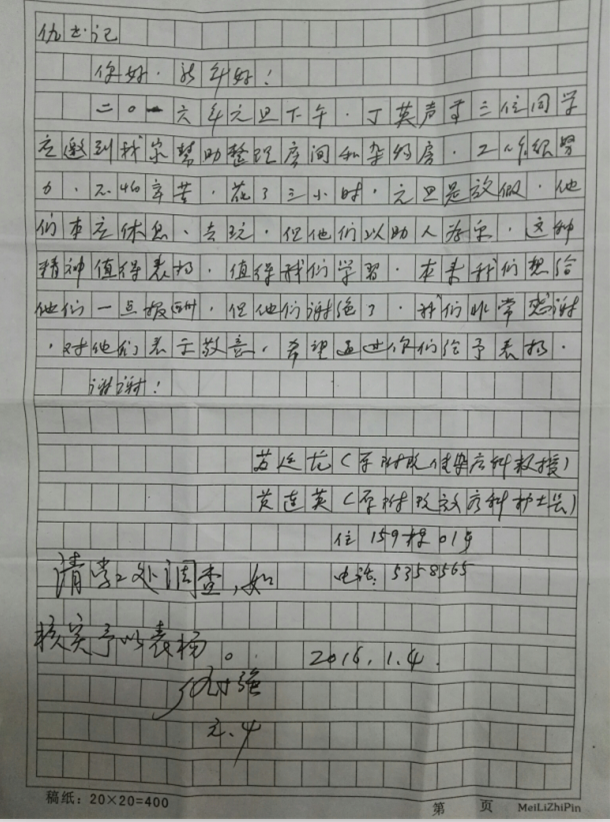 仇书记
你好·新年好！
二〇一六年元旦下午·丁英声等三位同学
应邀到我家帮助整理房间和杂物房·工作很努
力·不怕辛苦·花了三小时·元旦是放假·他
们本应休息、去玩·但他们以助人为乐·这种
精神值得表扬·值得我们学习·本来我们想给
他们一点报酬·但他们谢绝了·我们非常感谢
·对他们表示敬意·希望通过你们给予表扬·
谢谢！
(原附院传染病科教授)
黄连英(原附院放疗科护士长)
住159栋019
电话: 5358565
请学工处调查,如
核实予以表扬。
2016.1.4.
元.4
稿纸：20×20=400
第 页 MeiLiZhiPin